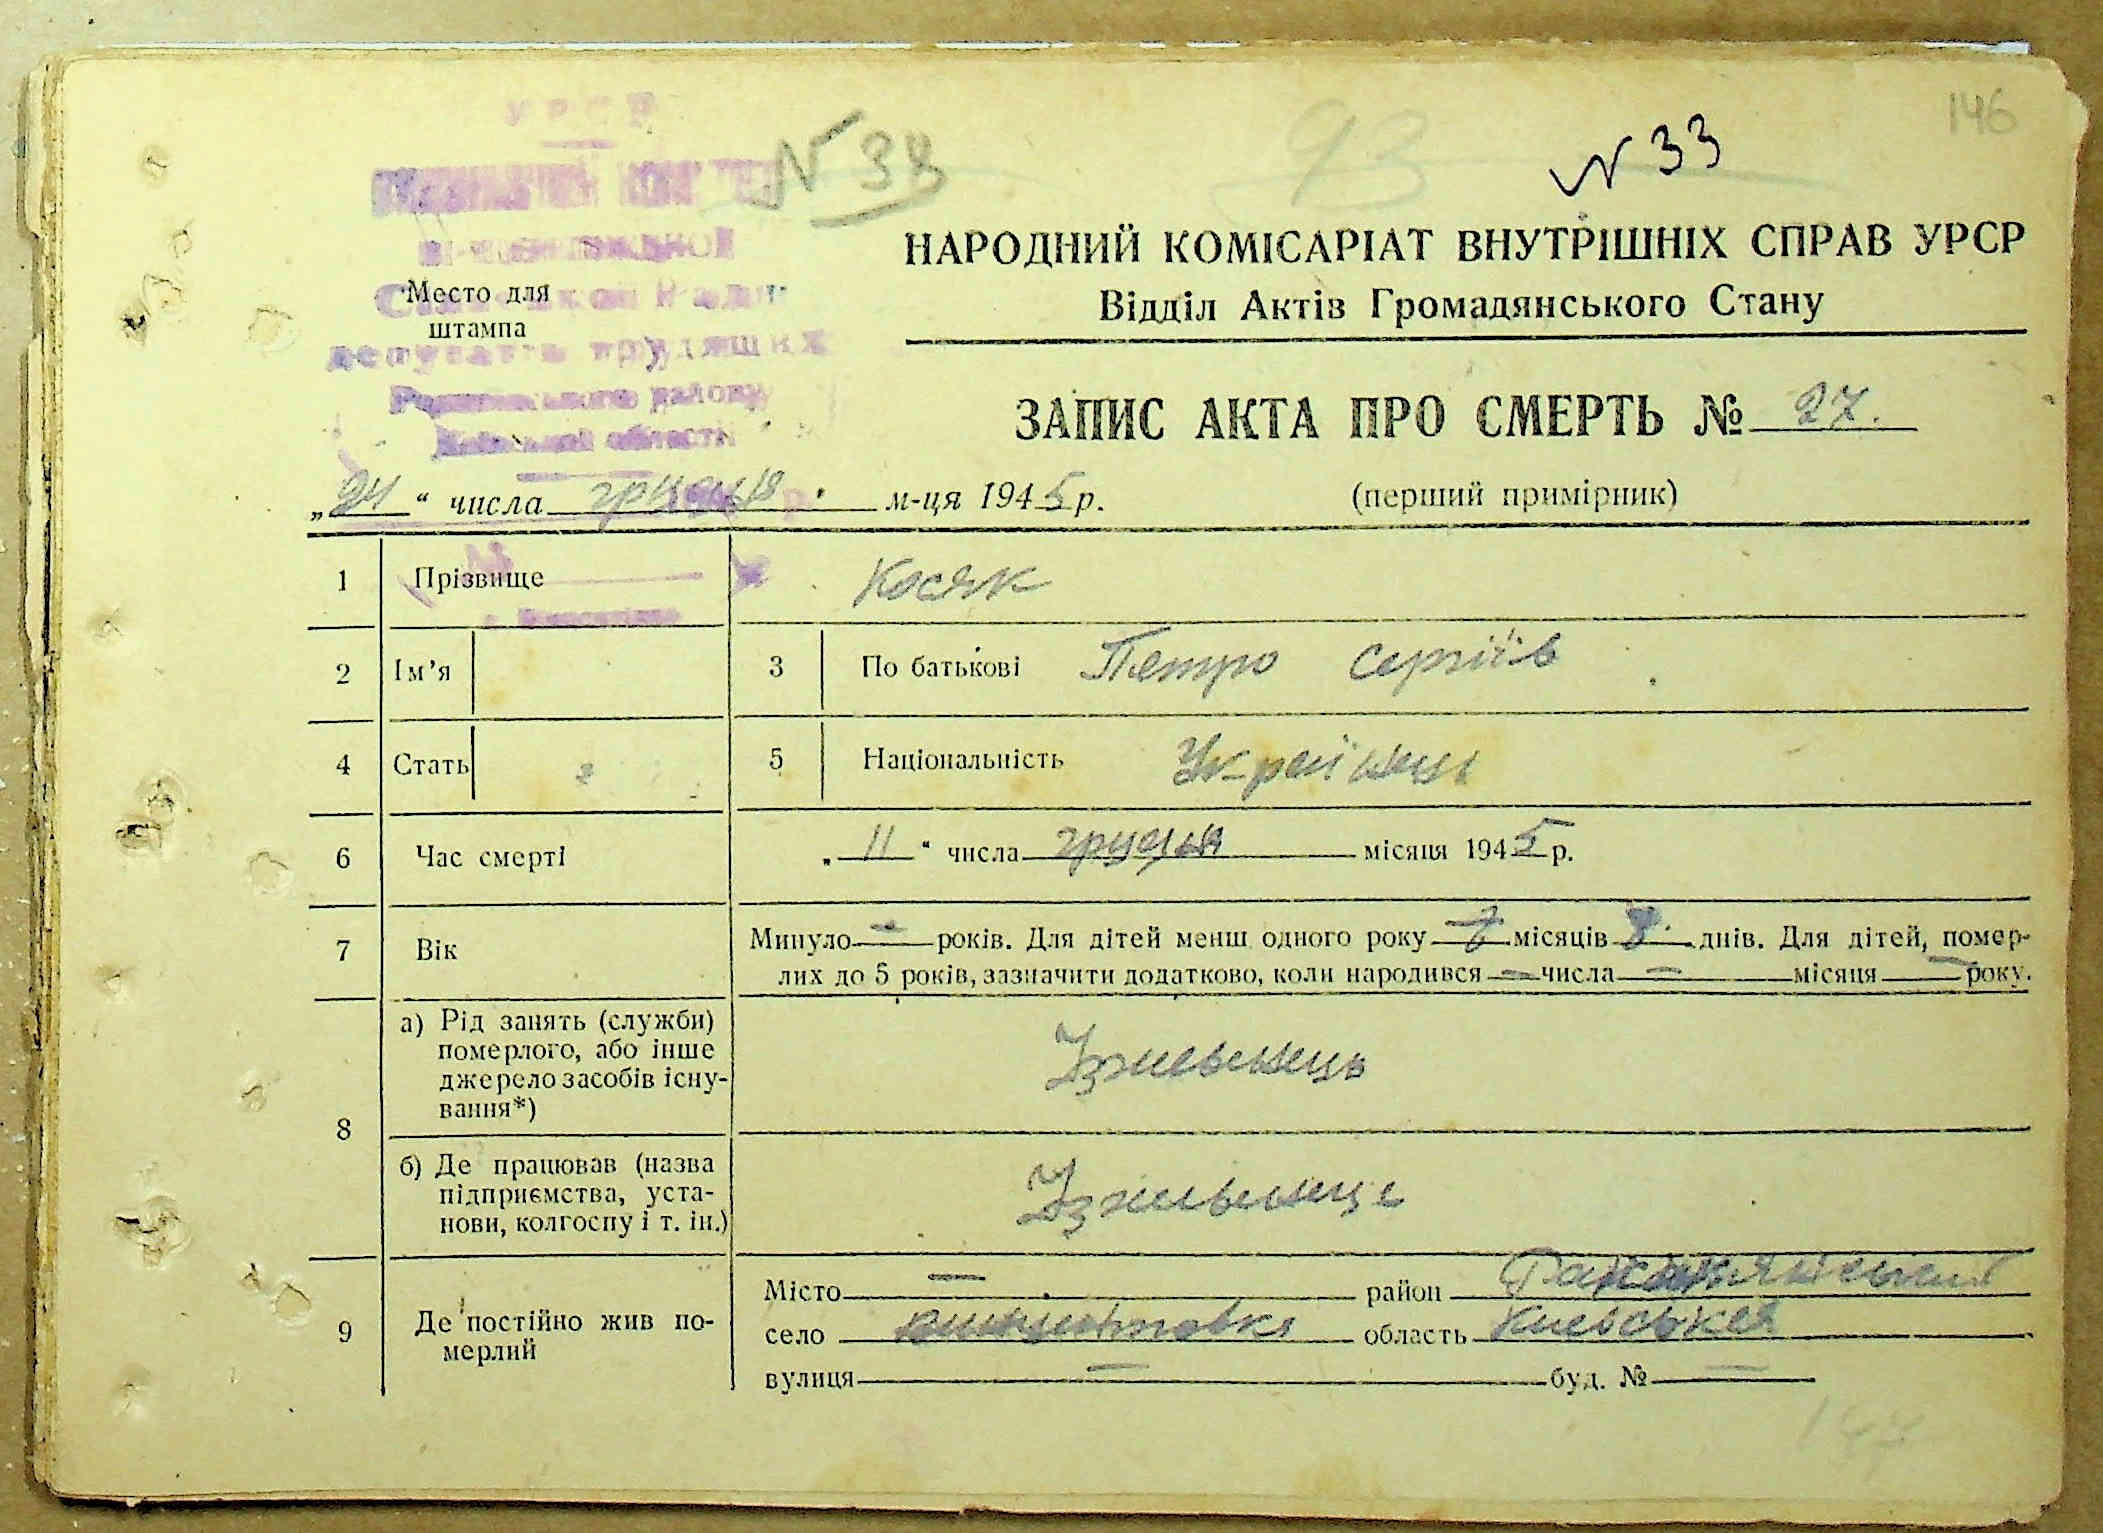 146
УРСР
N 33
93
N 33
НАРОДНИЙ КОМІСАРІАТ ВНУТРІШНІХ СПРАВ УРСР
Відділ Актів Громадянського Стану
Место для
штампа
депутатів трудящих
району
області
ЗАПИС АКТА ПРО СМЕРТЬ № 27.
„24" числа грудня м-ця 1945 р.
(перший примірник)
1 Прізвище Косяк
2 Ім'я 3 По батькові Петро Сергіїв
4 Стать 5 Національність Украйнець
6 Час смерті „11" числа грудня місяця 1945 р.
7 Вік Минуло — років. Для дітей менш одного року місяців днів. Для дітей, помер-
лих до 5 років, зазначити додатково, коли народився — числа — місяця — року.
8 а) Рід занять (служби)
померлого, або інше
джерело засобів існу-
вання*)
Ізжевенець
б) Де працював (назва
підприємства, уста-
нови, колгоспу і т. ін.)
9 Де постійно жив по-
мерлий
Місто — район
село область Киевська
вулиця — буд. № —
147